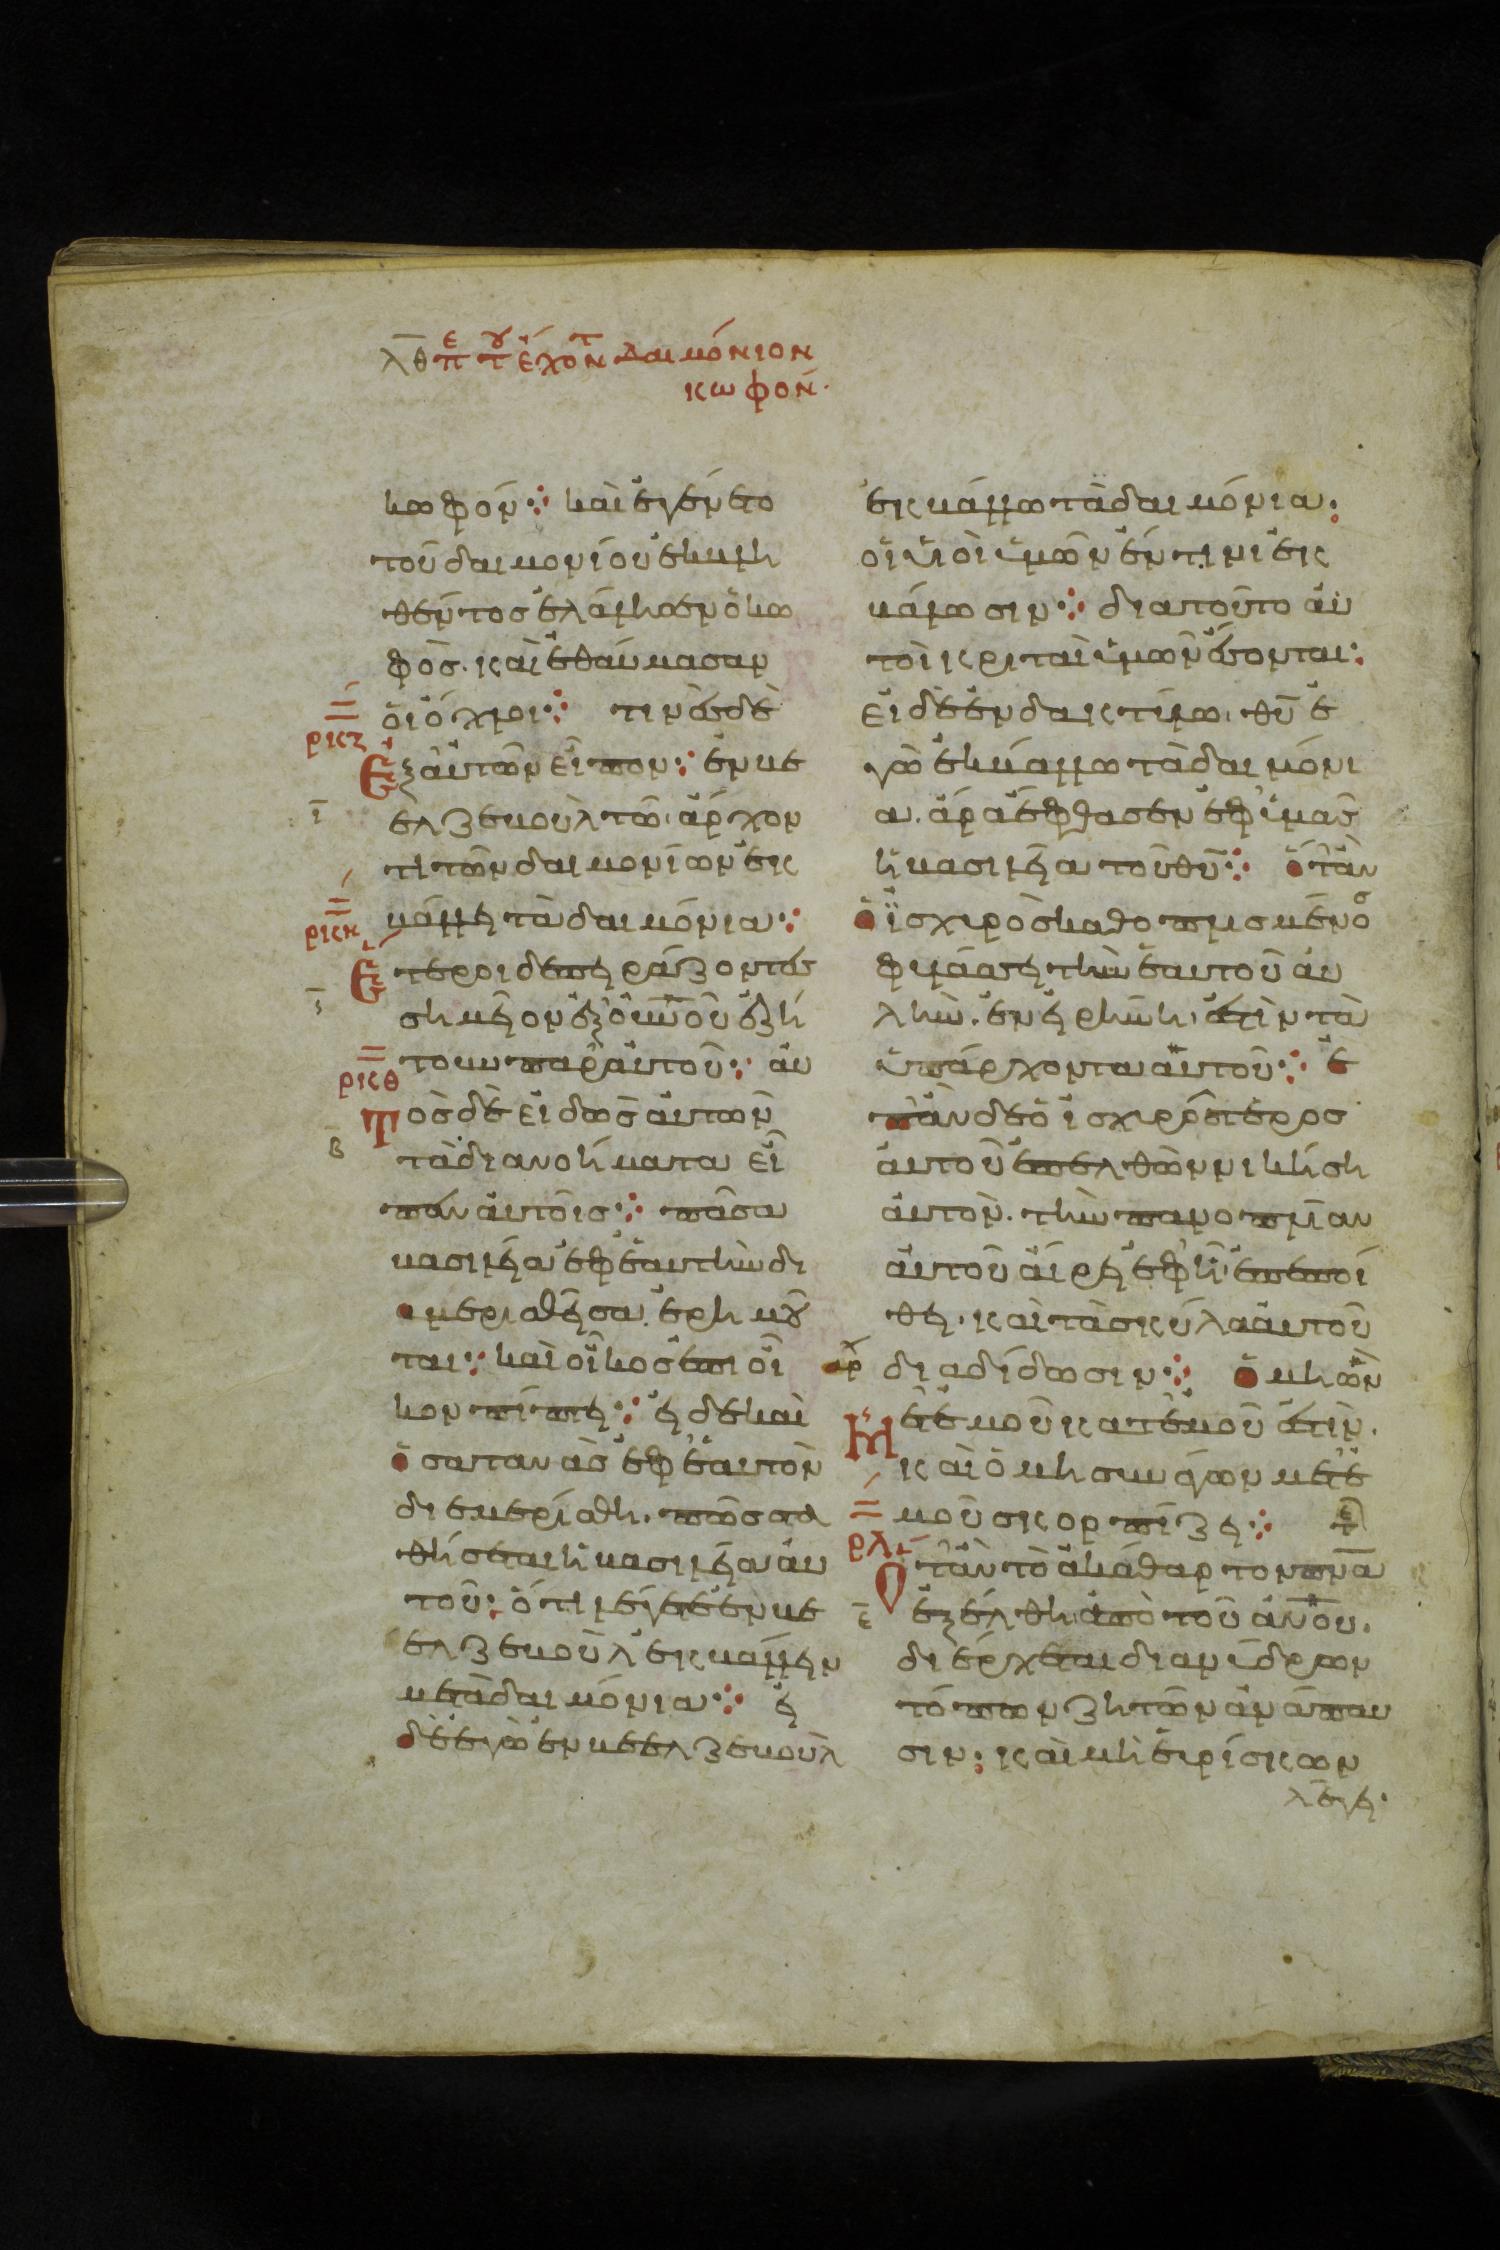 λθ περὶ τοῦ ἔχοντ δαιμόνιον
κωφόν.
κωφόν· καὶ ἐγένετο
τοῦ δαιμονίου ἐκβλη
θέντος ἐλάλησεν ὁ κω
φός. καὶ ἐθαύμασαν
οἱ ὄχλοι· τινὲς δὲ
ρκζ
Ἐξ αὐτῶν εἶπον· ἐν βε
ι
ελζεβοὺλ τῶ ἄρχον
τι τῶν δαιμονίων ἐκ
ρκη
βάλλει τὰ δαιμόνια·
Ἕτεροι δὲ πειράζοντες
ς
σημεῖον ἐξ οὐνοῦ ἐζή
ρκθ
τουν παρ' αὐτοῦ· αὐ
Τὸς δὲ εἰδὼς αὐτῶν
β
τὰ διανοήματα εἶ
πεν αὐτοῖς· πᾶσα
βασιλεία ἐφ' ἑαυτὴν δι
αμερισθεῖσα ἐρημοῦ
ται· καὶ οἶκος ἐπι οἶ
κον πίπτει· εἰ δὲ καὶ
ὁ σατανᾶς ἐφ' ἑαυτὸν
διεμερίσθη. πῶς στα
θήσεται ἡ βασιλεία αὐ
τοῦ· ὅτι λέγετε ἐν βε
ελζεβοὺλ ἐκβάλλειν
με τὰ δαιμόνια· εἰ
δὲ ἐγὼ ἐν βεελζεβοὺλ
ἐκβάλλω τὰ δαιμόνια·
οἱ υἱοὶ ὑμῶν ἐν τίνι ἐκ
βάλωσιν· διατοῦτο αὐ
τοὶ κριταὶ ὑμῶν ἔσονται·
εἰ δὲ ἐν δακτύλω θυ ἐ
γὼ ἐκβάλλω τὰ δαιμόνι
α. ἄρα ἔφθασεν ἐφ' ὑμᾶς
ἡ βασιλεία τοῦ θυ· ὅταν
ὁ ἰσχυρὸς καθοπλισμένος
φυλάσσει τὴν ἑαυτοῦ αὐ
λήν. ἐν εἰρήνη ἐστὶν τὰ
ὑπάρχοντα αὐτοῦ· ἐ
πὰν δὲ ὁ ἰσχυρότερος
αὐτοῦ ἐπελθὼν νικήση
αὐτόν. τὴν πανοπλίαν
αὐτοῦ αἴρει ἐφ' ἧ ἐπεποί
θει. καὶ τὰ σκῦλα αὐτοῦ
αρχ διαδίδωσιν· ὁ μὴ ὢν
Μετ' ἐμοῦ κατ' ἐμοῦ ἐστίν.
καὶ ὁ μὴ συνάγων μετ' ἐ
μοῦ σκορπίζει·
ρλ
Ὅταν τὸ ἀκάθαρτον πνα
ε
ἐξέλθη ἀπὸ τοῦ ἀνου.
διέρχεται δι ανύδρων
τόπων ζητῶν ἀνάπαυ
σιν· καὶ μὴ εὑρίσκων
λέγει·